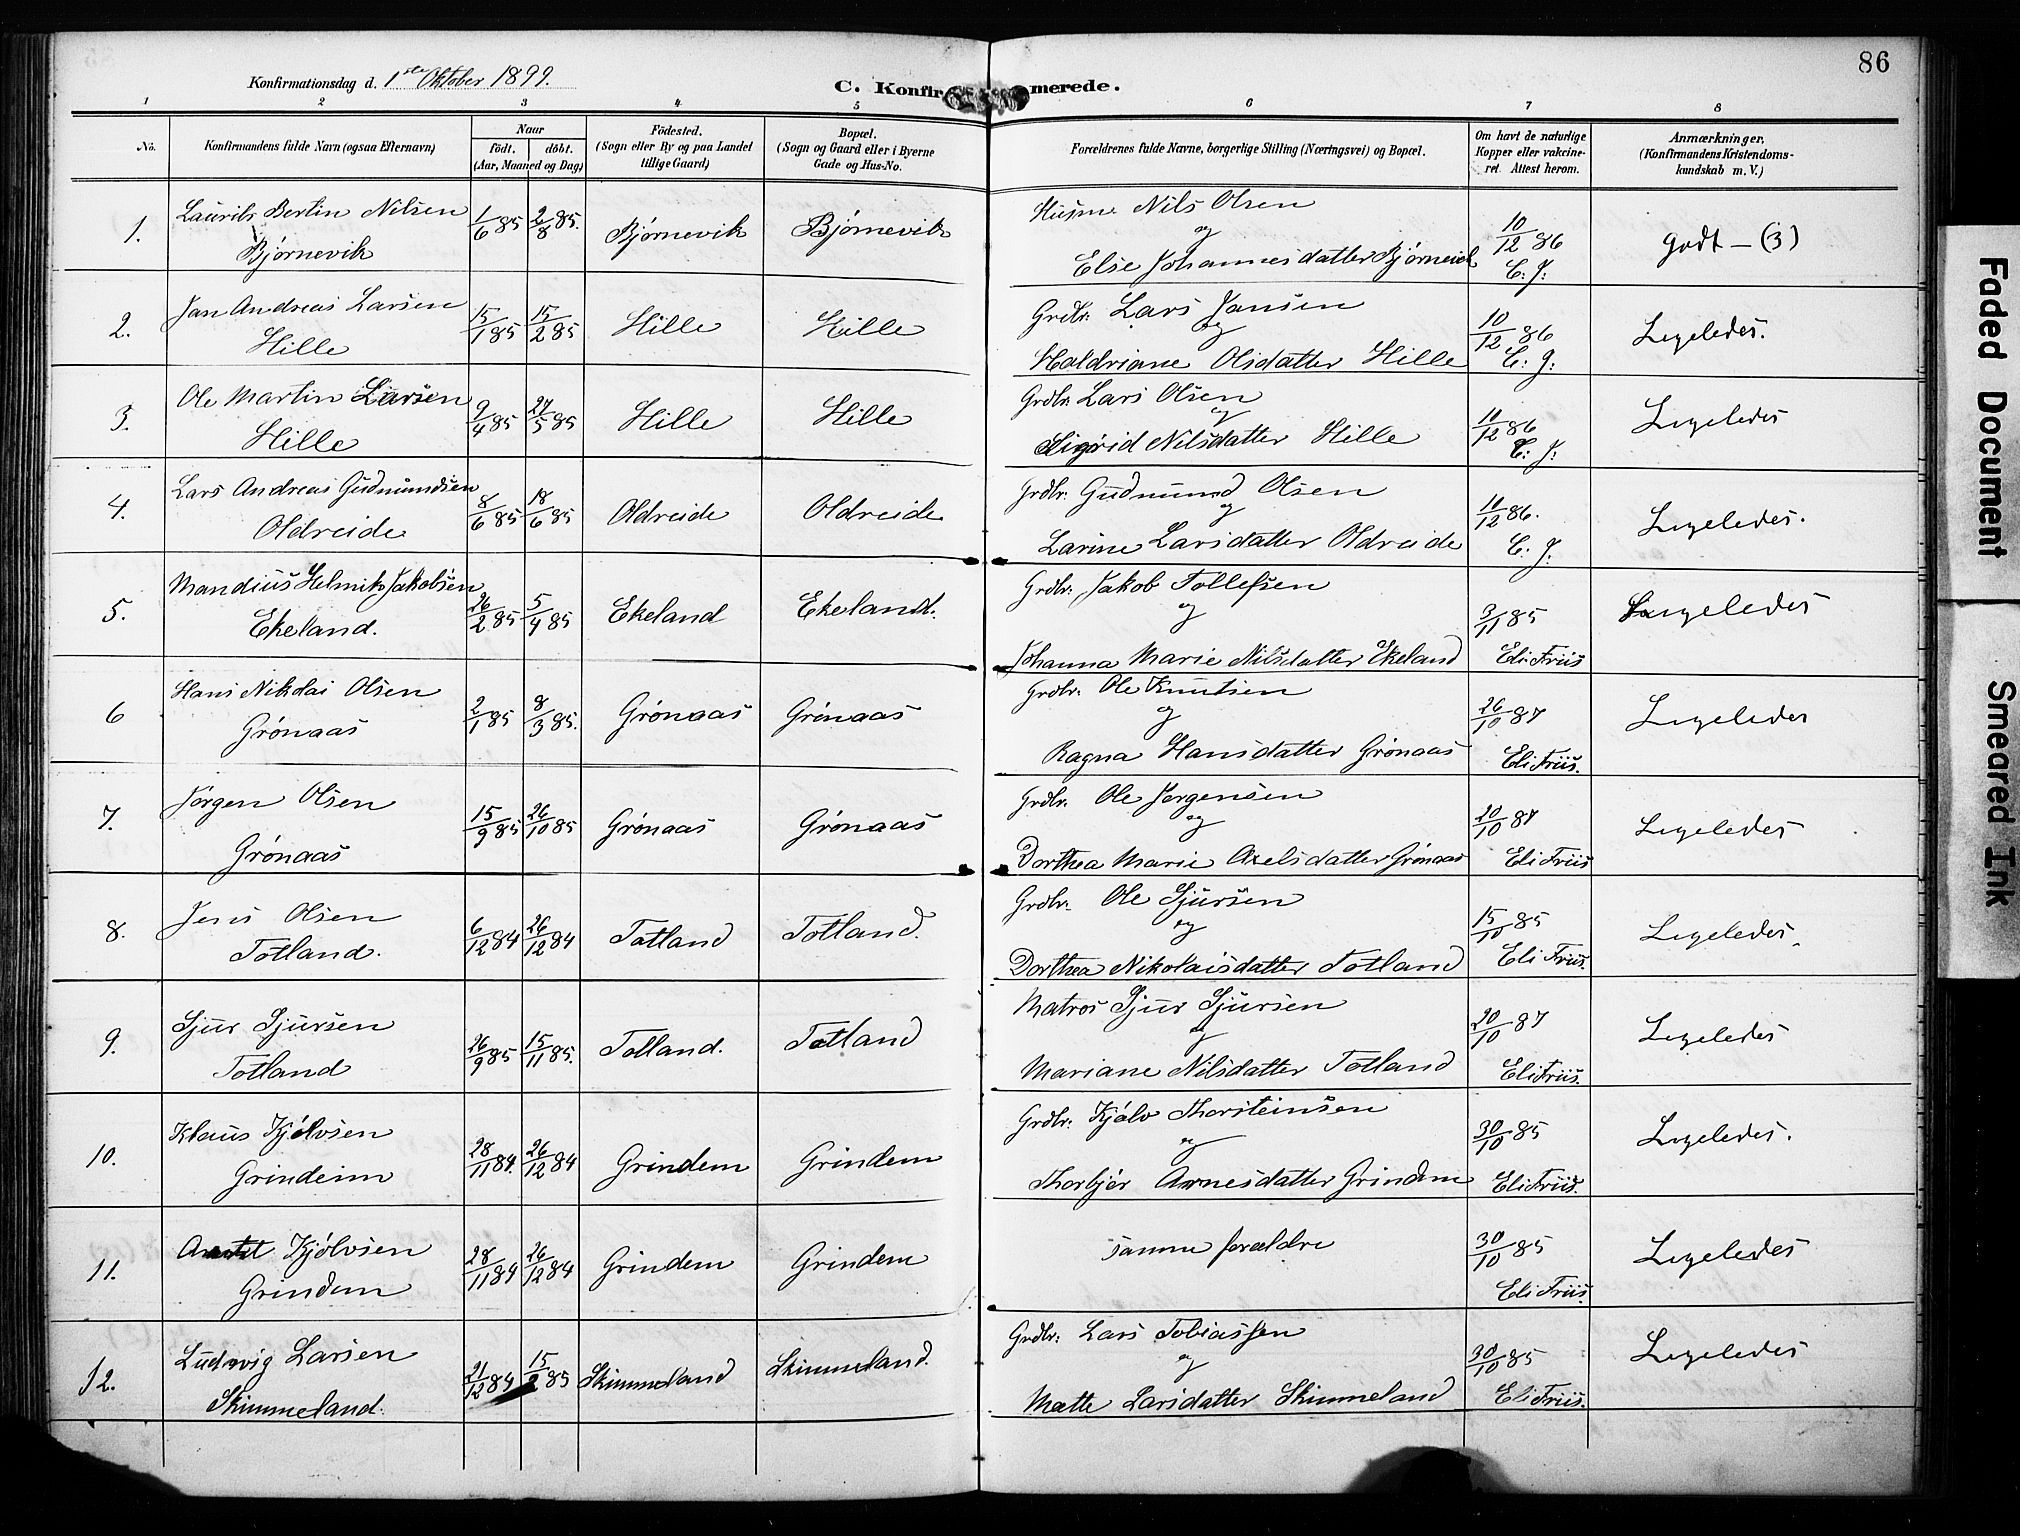 86
Konfirmationsdag d. 1ste Oktober 1899.
C. Konfir merede.
1 2 3 4 5 6 7 8
No.
Konfirmandens fulde Navn (ogsaa Efternavn)
Naar
födt. döbt.
(Aar, Maaned og Dag)
Födested.
(Sogn eller By og paa Landet
tillige Gaard)
Bopæl.
(Sogn og Gaard eller i Byerne
Gade og Hus-No.
Forældrenes fulde Navne, borgerlige Stilling (Næringsvei) og Bopæl.
Om havt de naturlige
Kopper eller vakcine-
ret Attest herom.
Anmærkninger,
(Konfirmandens Kristendoms-
kundskab m. V.)
1. Laurits Bertin Nilsen
Bjørnevik
1/6 85 2/8 85. Bjørnevik Bjørnevik
Husm. Nils Olsen
og
Else Johannesdatter Bjørnevik
10/12 86
C. J.
Godt – (3)
2. Jan Andreas Larsen
Hille
15/1 85 15/2 85 Hille Hille
Grdbr. Lars Jansen
og
Haldriane Olsdatter Hille
10/12 86
C. J.
Ligeledes.
3. Ole Martin Larsen
Hille
9/4 85 27/5 85 Hille Hille
Grdbr. Lars Olsen
og
Sigrid Nilsdatter Hille
11/12 86
C. J.
Ligeledes
4. Lars Andreas Gudmundsen
Oldreide
8/6 85 18/6 85 Oldreide Oldreide
Grdbr. Gudmund Olsen
og
Larine Larsdatter Oldreide
11/12 86.
C. J.
Ligeledes.
5. Mandius Helmik Jakobsen
Ekeland.
26/2 85 5/4 85 Ekeland Ekeland.
Grdbr. Jakob Tollefsen
og
Johanna Marie Nilsdatter Ekeland
3/11 85
Eli Friis
Ligeledes
6 Hans Nikolai Olsen
Grønaas
2/1 85 8/3 85. Grønaas Grønaas
Grdbr. Ole Knutsen
og
Ragna Hansdatter Grønaas
26/10 87
Eli Friis.
Ligeledes
7. Jørgen Olsen
Grønaas
15/9 85 26/10 85 Grønaas Grønaas
Grdbr. Ole Jørgensen
og
Dorthea Marie Axelsdatter Grønaas
20/10 87
Eli Friis
Ligeledes
8. Jens Olsen
Totland.
6/12 84 26/12 84 Totland Totland.
Grdbr. Ole Sjursen
og
Dorthea Nikolaisdatter Totland
15/10 85
Eli Friis.
Ligeledes.
9. Sjur Sjursen
Totland
26/9 85 15/11 85. Totland. Totland
Matros Sjur Sjursen
og
Mariane Nilsdatter Totland
20/10 87
Eli Friis.
Ligeledes
10. Klaus Kjølvsen
Grindeim
28/11 84. 26/12 84 Grindem Grindem
Grdbr. Kjølv Thorsteinsen
og
Thorbjør Arnesdatter Grindem
30/10 85
Eli Friis.
Ligeledes.
11. Kjølvsen
Grindem
28/11 84 26/12 84 Grindem Grindem
samme forældre
30/10 85
Eli Friis.
Ligeledes
12. Ludvig Larsen
Skimmeland.
21/12 84 15/2 85 Skimmeland Skimmeland.
Grdbr. Lars Tobiassen
og
Mette Larsdatter Skimmeland
30/10 85
Eli Friis.
Ligeledes
Faded Document
Smeared Ink